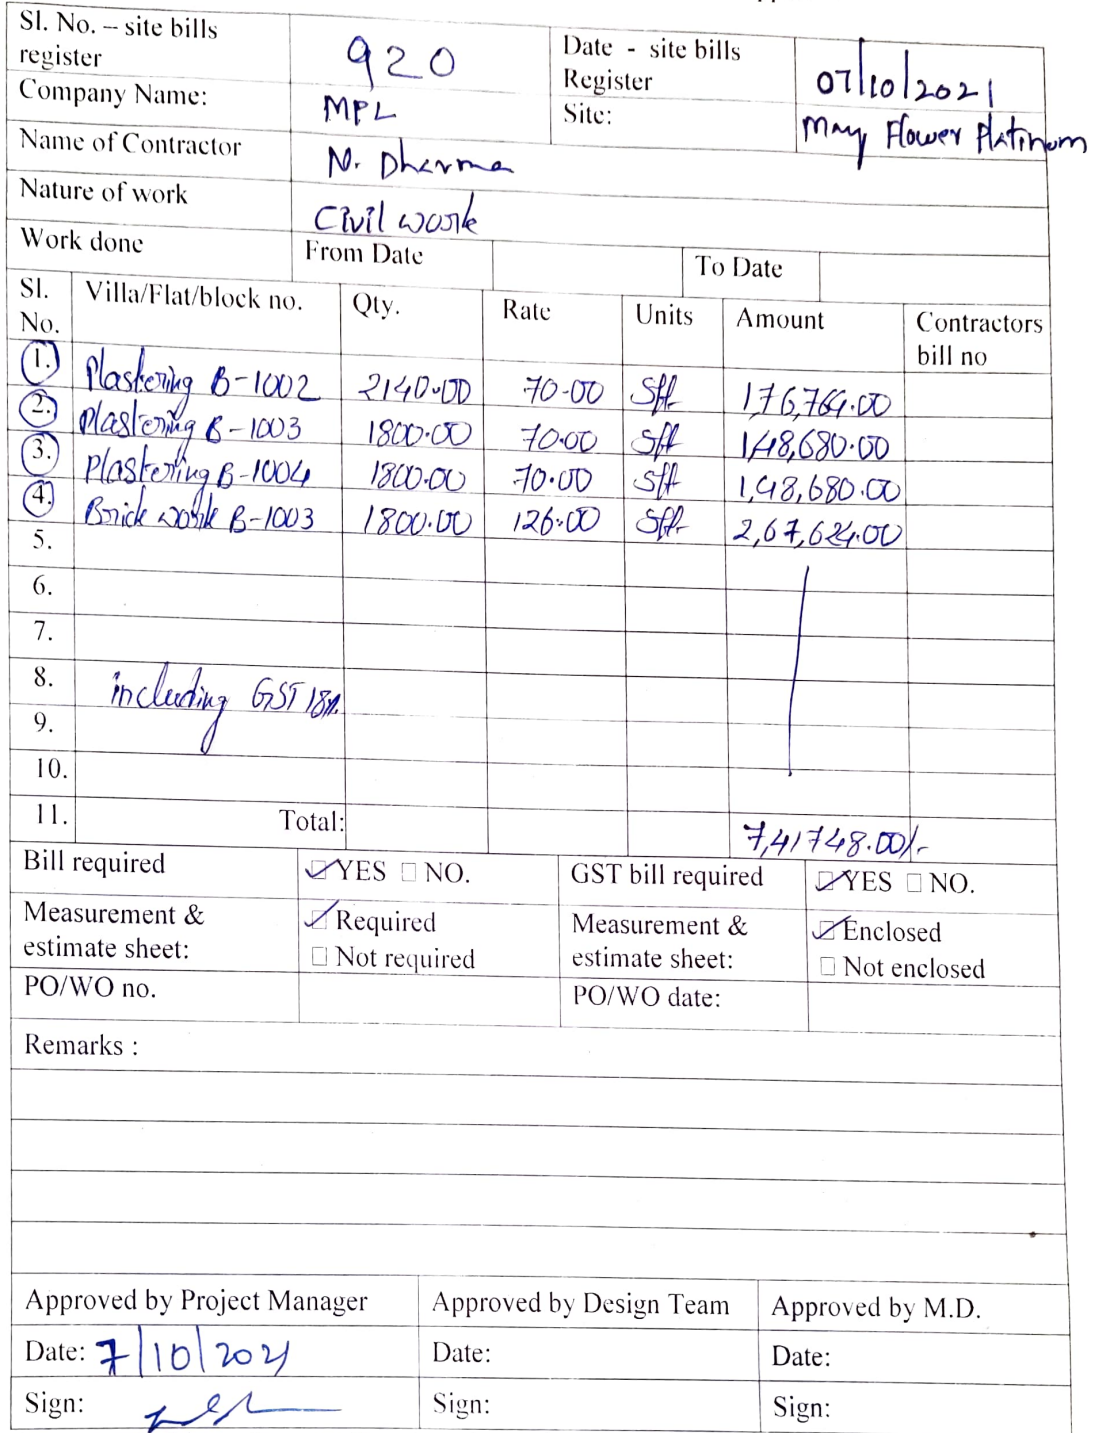 Sl. No. – site bills register 920 Date - site bills Register 07/10/2021
Company Name: MPL Site: May Flower Platinum
Name of Contractor N. Dharma
Nature of work Civil work
Work done From Date To Date
Sl. No. Villa/Flat/block no. Qty. Rate Units Amount Contractors bill no
1. Plastering B-1002 2140.00 70.00 Sft 1,76,764.00
2. Plastering B-1003 1800.00 70.00 Sft 1,48,680.00
3. Plastering B-1004 1800.00 70.00 Sft 1,48,680.00
4. Brick work B-1003 1800.00 126.00 Sft 2,67,624.00
5.
6.
7.
8. including GST 18%
9.
10.
11. Total: 7,41748.00/-
Bill required YES NO. GST bill required YES NO.
Measurement & estimate sheet: Required Not required Measurement & estimate sheet: Enclosed Not enclosed
PO/WO no. PO/WO date:
Remarks :
Approved by Project Manager Approved by Design Team Approved by M.D.
Date: 7/10/2021 Date: Date:
Sign: Sign: Sign: